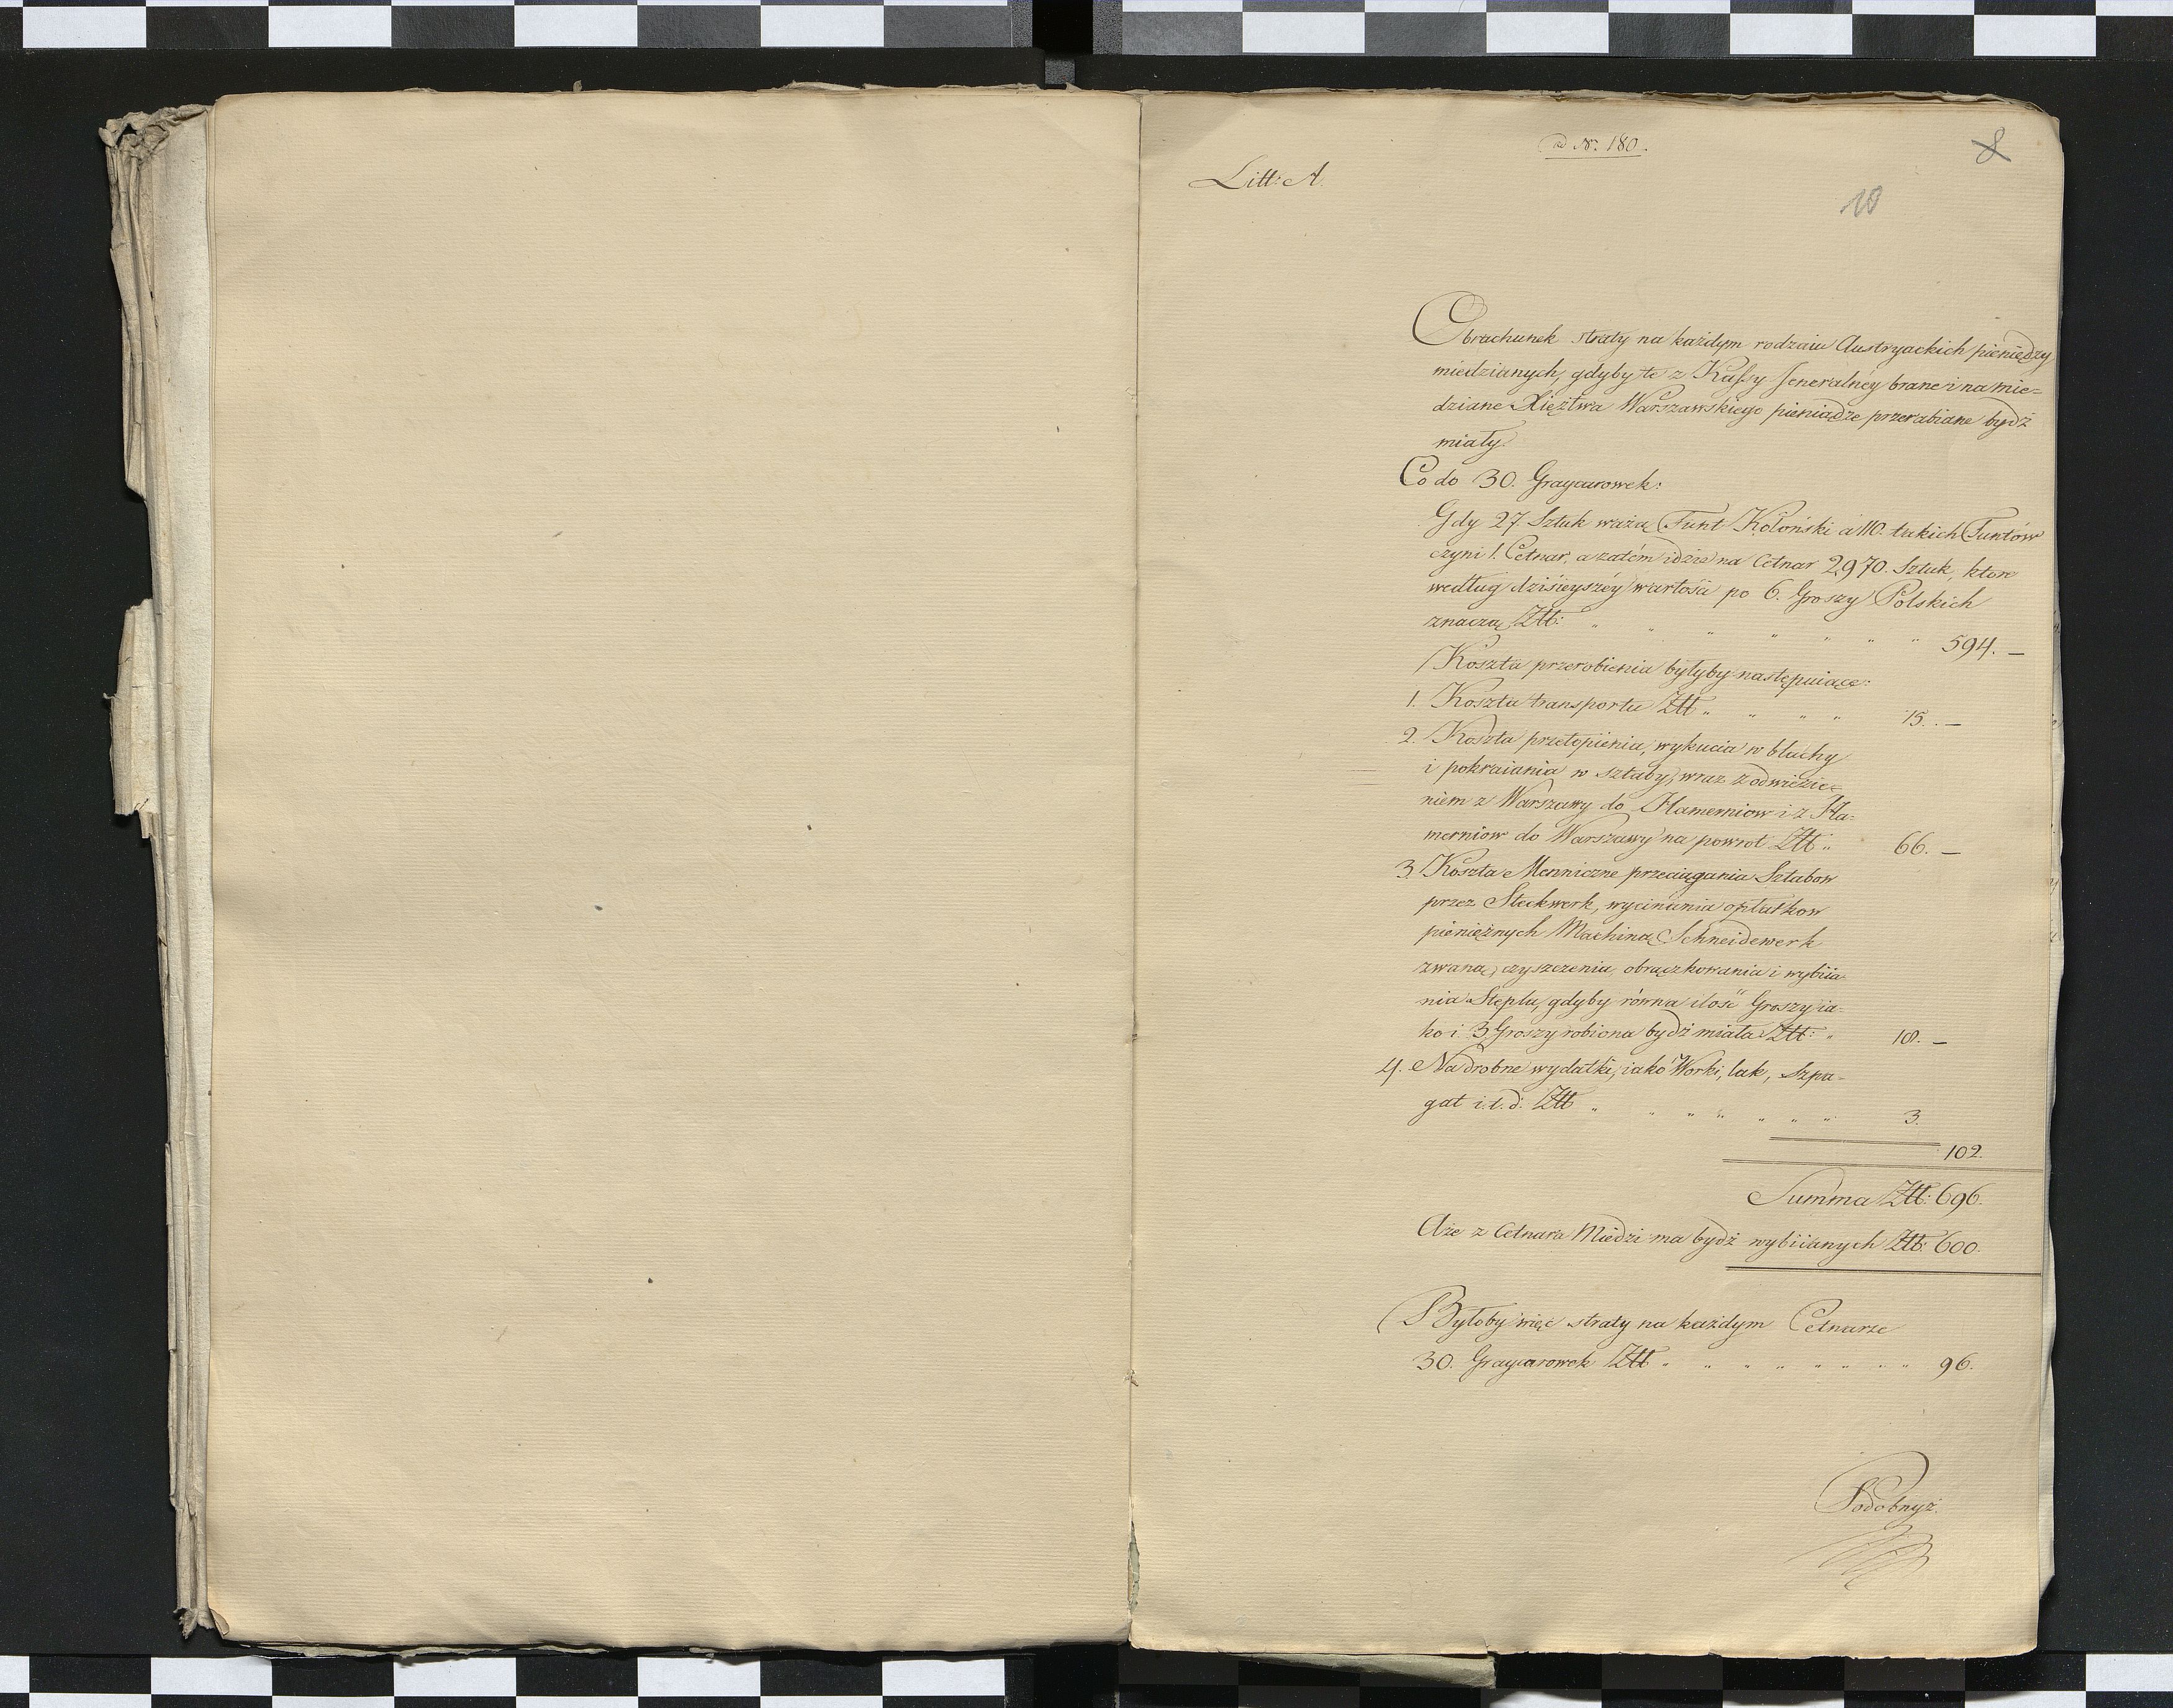 ad Nr. 180.
8
Litt: A.
10
Obrachunek straty na każdym rodzaiu Austryackich pieniędzy
miedzianych, gdyby te z Kassy Jeneralney brane i na mie-
dziane Xięztwa Warszawskiego pieniądze przerabiane bydź
miały.
Co do 30. Graycarowek:
Gdy 27. Sztuk ważą Funt Koloński a 110. takich Funtów
czyni 1. Cetnar, a zatém idzie na Cetnar 2,970. Sztuk, które
według dzisieyszéy wartości po 6. Groszy Polskich
znaczą Złt: " " " " " " " 594. —
Koszta przerobienia byłyby następuiące:
1. Koszta transportu Złt " " " " 15. —
2. Koszta przetopienia, wykucia w blachy
i pokraiania w sztaby, wraz z odwiezie-
niem z Warszawy do Hamerniow i z Ha-
merniow do Warszawy na powrot Złt " 66. —
3. Koszta Mennicze przeciągania Sztabow
przez Steckwerk, wycinania opłatkow
pieniężnych Machiną Schneidewerk
zwaną, czyszczenia, obrączkowania i wybiia-
nia Stęplu, gdyby równa ilość Groszy ia-
ko i 3 Groszy robiona bydź miała Złt: " 18. —
4. Na drobne wydatki, iako Worki, lak, Szpa-
gat i.t.d. Złt " " " " " " " 3.
102.
Summa Złt: 696.
A że z Cetnara Miedzi ma bydź wybiianych Złt: 600.
Byłoby więc straty na każdym Cetnarze
30. Graycarowek Złt " " " " " " " " 96.
Podobnyż.